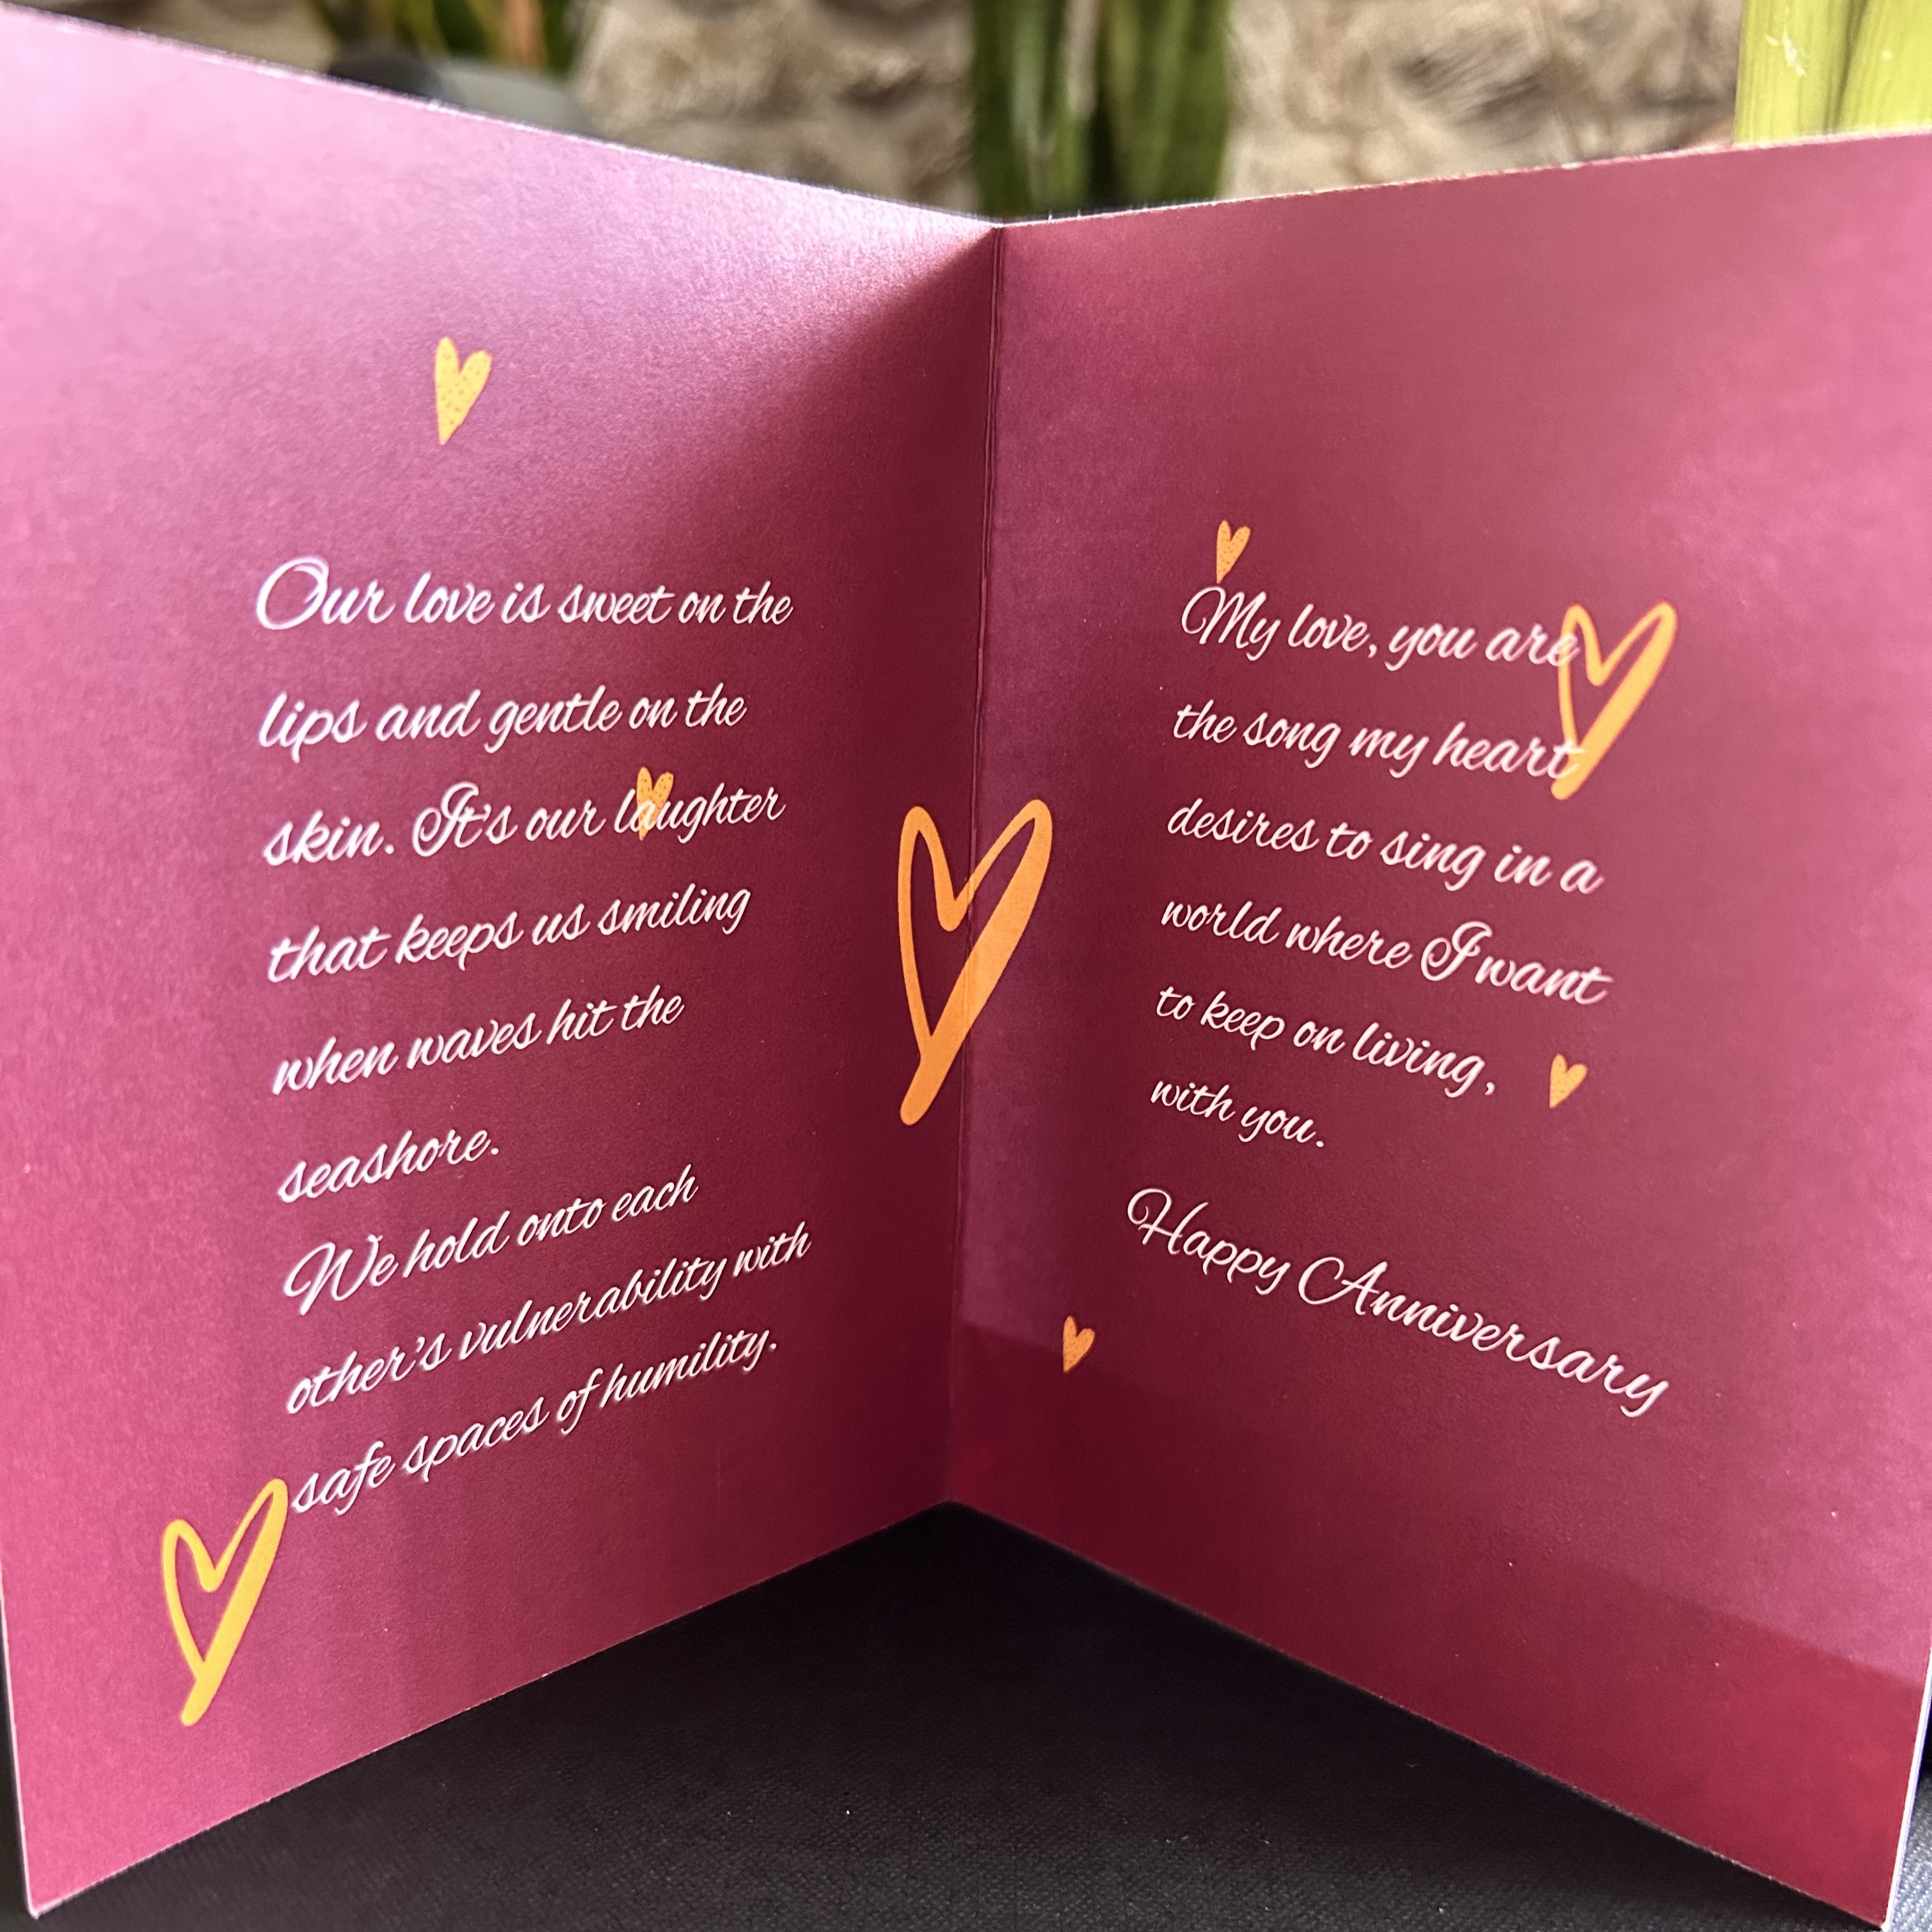 Our love is sweet on the
lips and gentle on the
skin. It's our laughter
that keeps us smiling
when waves hit the
seashore.
We hold onto each
other's vulnerability with
safe spaces of humility.
My love, you are
the song my heart
desires to sing in a
world where I want
to keep on living,
with you.
Happy Anniversary